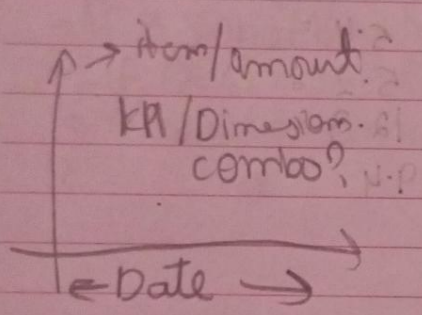 item/amount
KPI/Dimesion.
combo?
Date